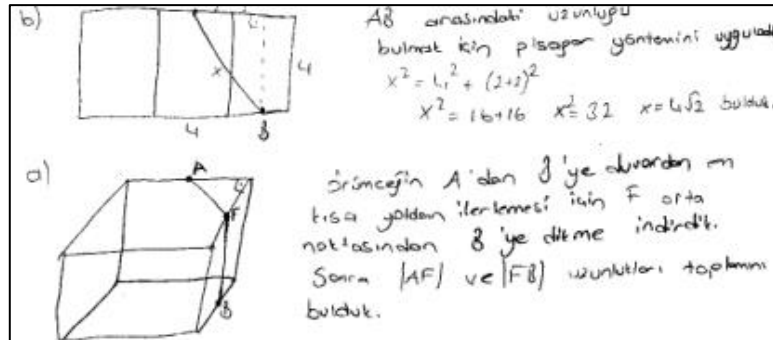 b)
AB arasındaki uzunluğu
bulmak için pisagor yöntemini uyguladı
x² = 4² + (2+2)²
x² = 16+16 x² = 32 x = 4√2 bulduk.
4
x
4
4
B
a)
A
4
F
B
örümceğin A'dan B'ye duvardan en
kısa yoldan ilerlemesi için F orta
noktasından B'ye dikme indirdik.
Sonra |AF| ve |FB| uzunlukları toplamını
bulduk.